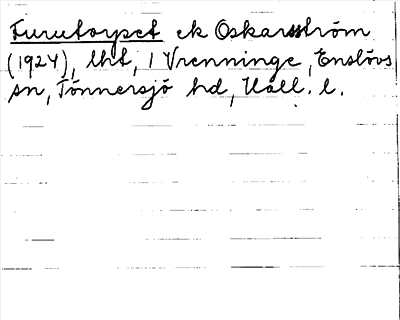 Furutorpet ek Oskarsström
(1924), lht, i Vrenninge, Enslövs
sn, Tönnersjö hd, Hall. l.